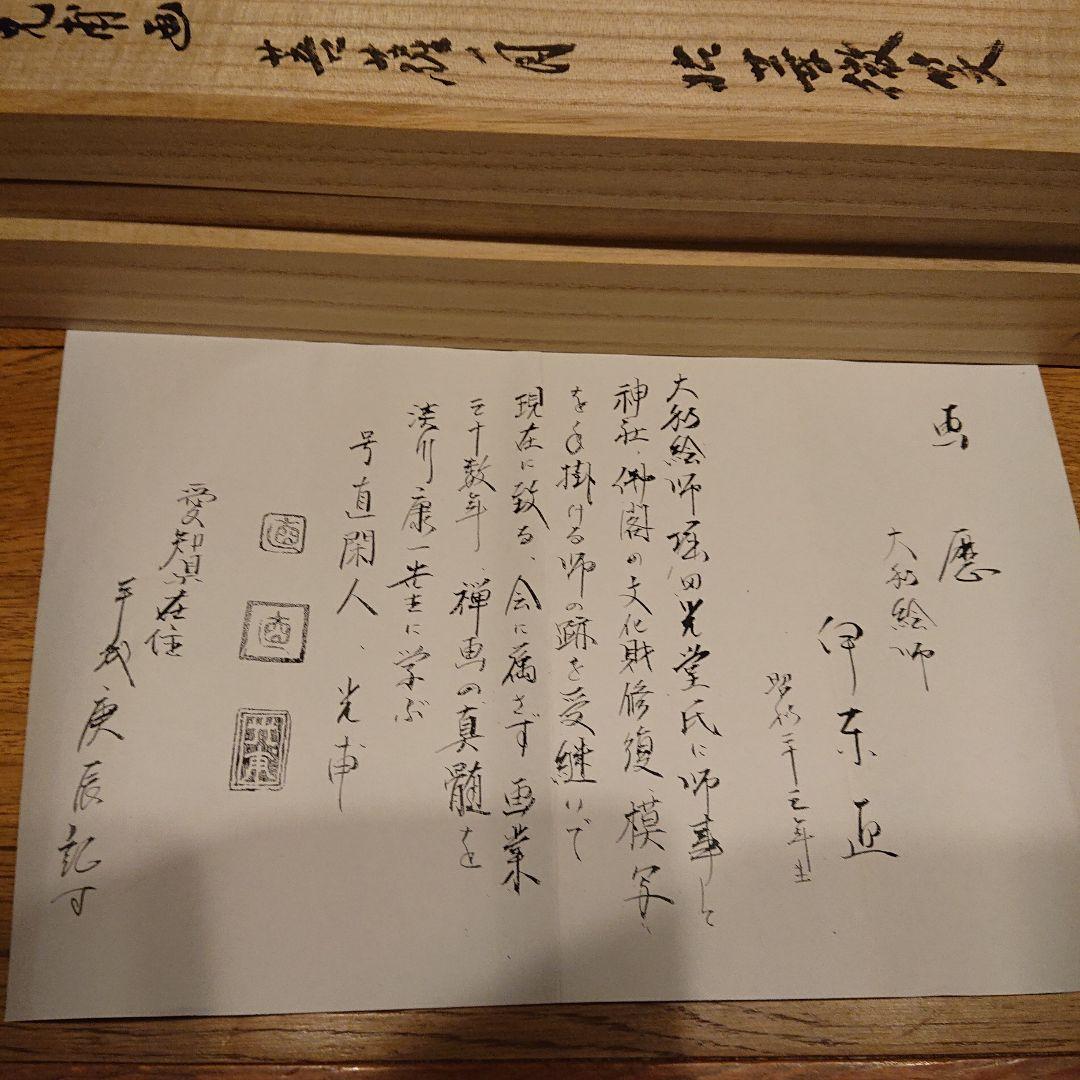 拈華微笑
菩薩ノ月
光甫画
画歴
大和絵師
伊東直
昭和二十三年生
大和絵師堀田光堂氏に師事して
神社、佛閣の文化財修復、模写、
を手掛ける師の跡を受継いで
現在に致る、会に属さず画業
三十数年、禅画の真髄を
淡川康一先生に学ぶ
号直閑人、光甫
伊東
愛智県在住
平成庚辰記す